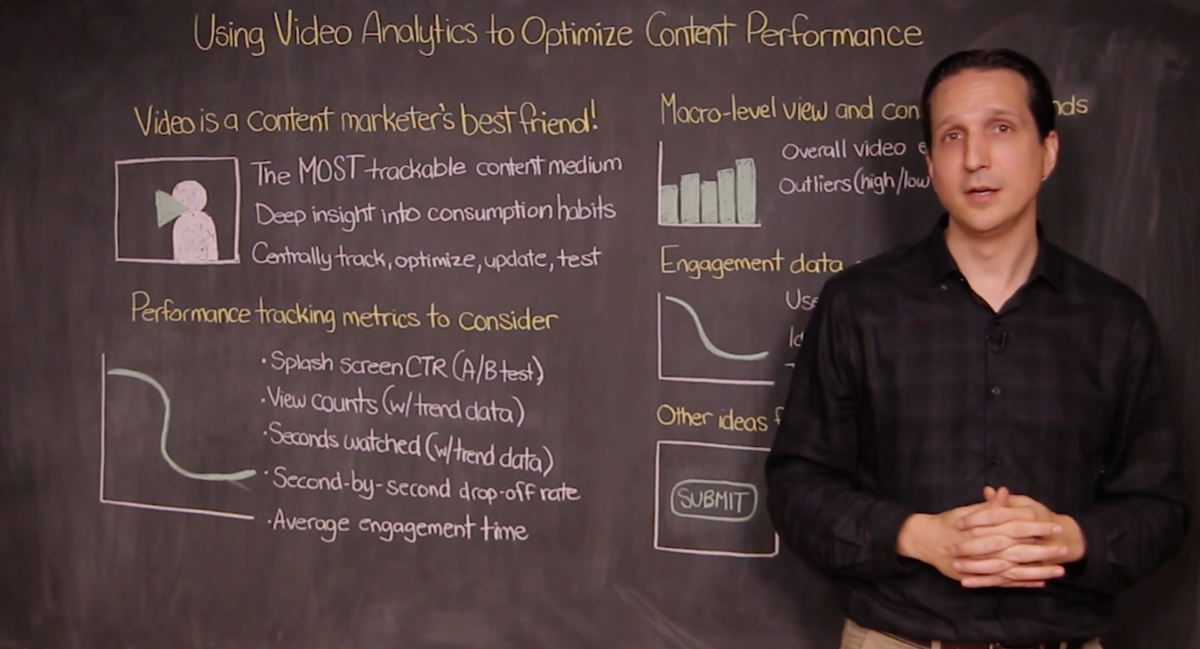 Using Video Analytics to Optimize Content Performance
Video is a content marketer's best friend!
The MOST trackable content medium
Deep insight into consumption habits
Centrally track, optimize, update, test
Performance tracking metrics to consider
· Splash screen CTR (A/B test)
· View counts (w/ trend data)
· Seconds watched (w/ trend data)
· Second-by-second drop-off rate
· Average engagement time
Macro-level view and
Overall video
Outliers (high/low
Engagement data
Other ideas
SUBMIT